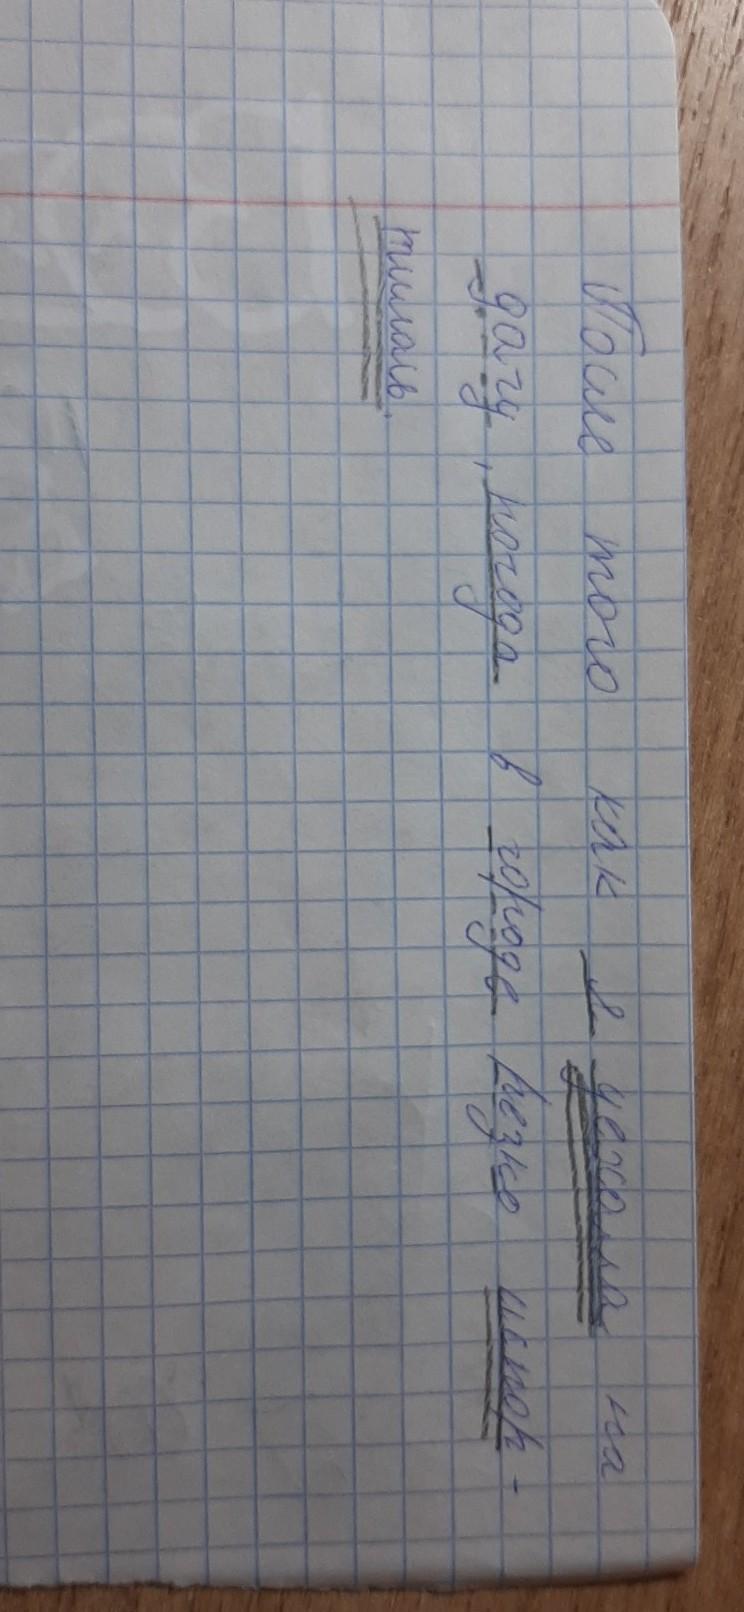 После того как я уехала на
дачу, погода в городе резко испор-
тилась.